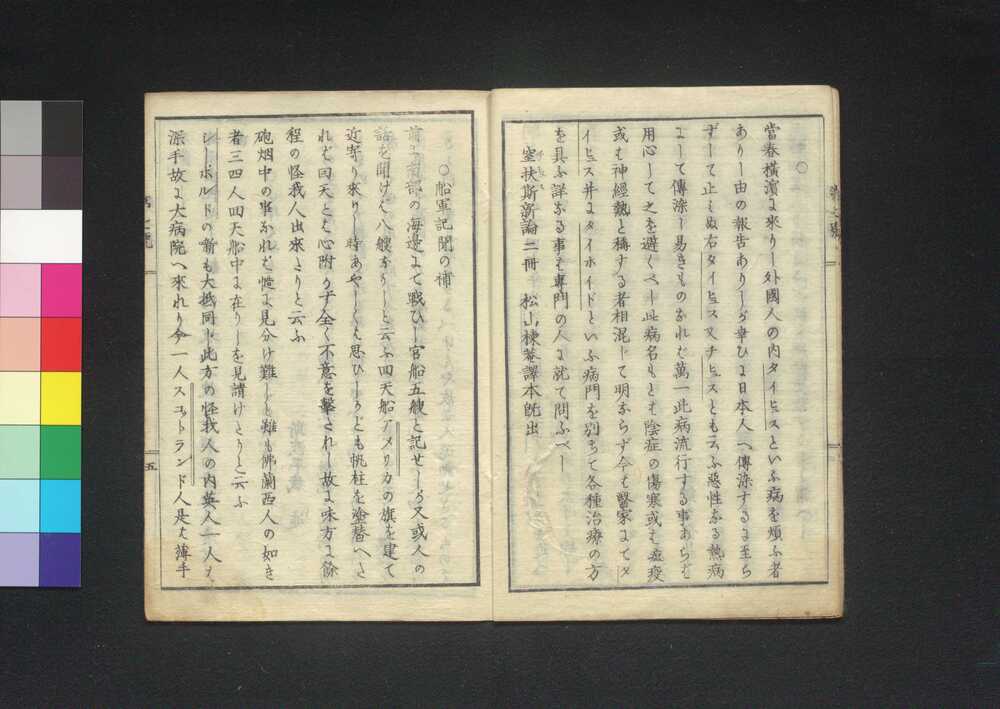 ○
當春横濱に來りし外國人の内タイヒュスといふ病を煩ふ者
ありし由の報告ありしが幸ひに日本人へ傳染するに至ら
ずして止みぬ右タイヒュス又チヒュスとも云ふ惡性なる熱病
にして傳染し易きものなれば萬一此病流行する事あらば
用心して之を避くべし此病名もとは陰症の傷寒或は瘟疫
或は神經熱と稱する者相混じて明ならず今は醫家にてタ
イヒュス并にタイホイドといふ病門を別ちて各種治療の方
を具ふ詳なる事は專門の人に就て問ふべし
窒扶斯新論二冊 松山棟菴譯本既出
○船軍記聞の補
前に南部の海邊にて戰ひし官船五艘と記せしが又或人の
話を聞けば八艘なりしと云ふ回天船アメリカの旗を建て
近寄り來りし時あやしくは思ひしかども帆柱を塗替へた
れば回天とは心附かず全く不意を擊されし故に味方に餘
程の怪我人出來たりと云ふ
砲烟中の事なれば慥に見分け難しと雖も佛蘭西人の如き
者三四人回天船中に在りしを見請けたりと云ふ
シーボルドの噺も大抵同じ此方の怪我人の内英人一人は
派手故に大病院へ來れり今一人スコットランド人是は薄手
五